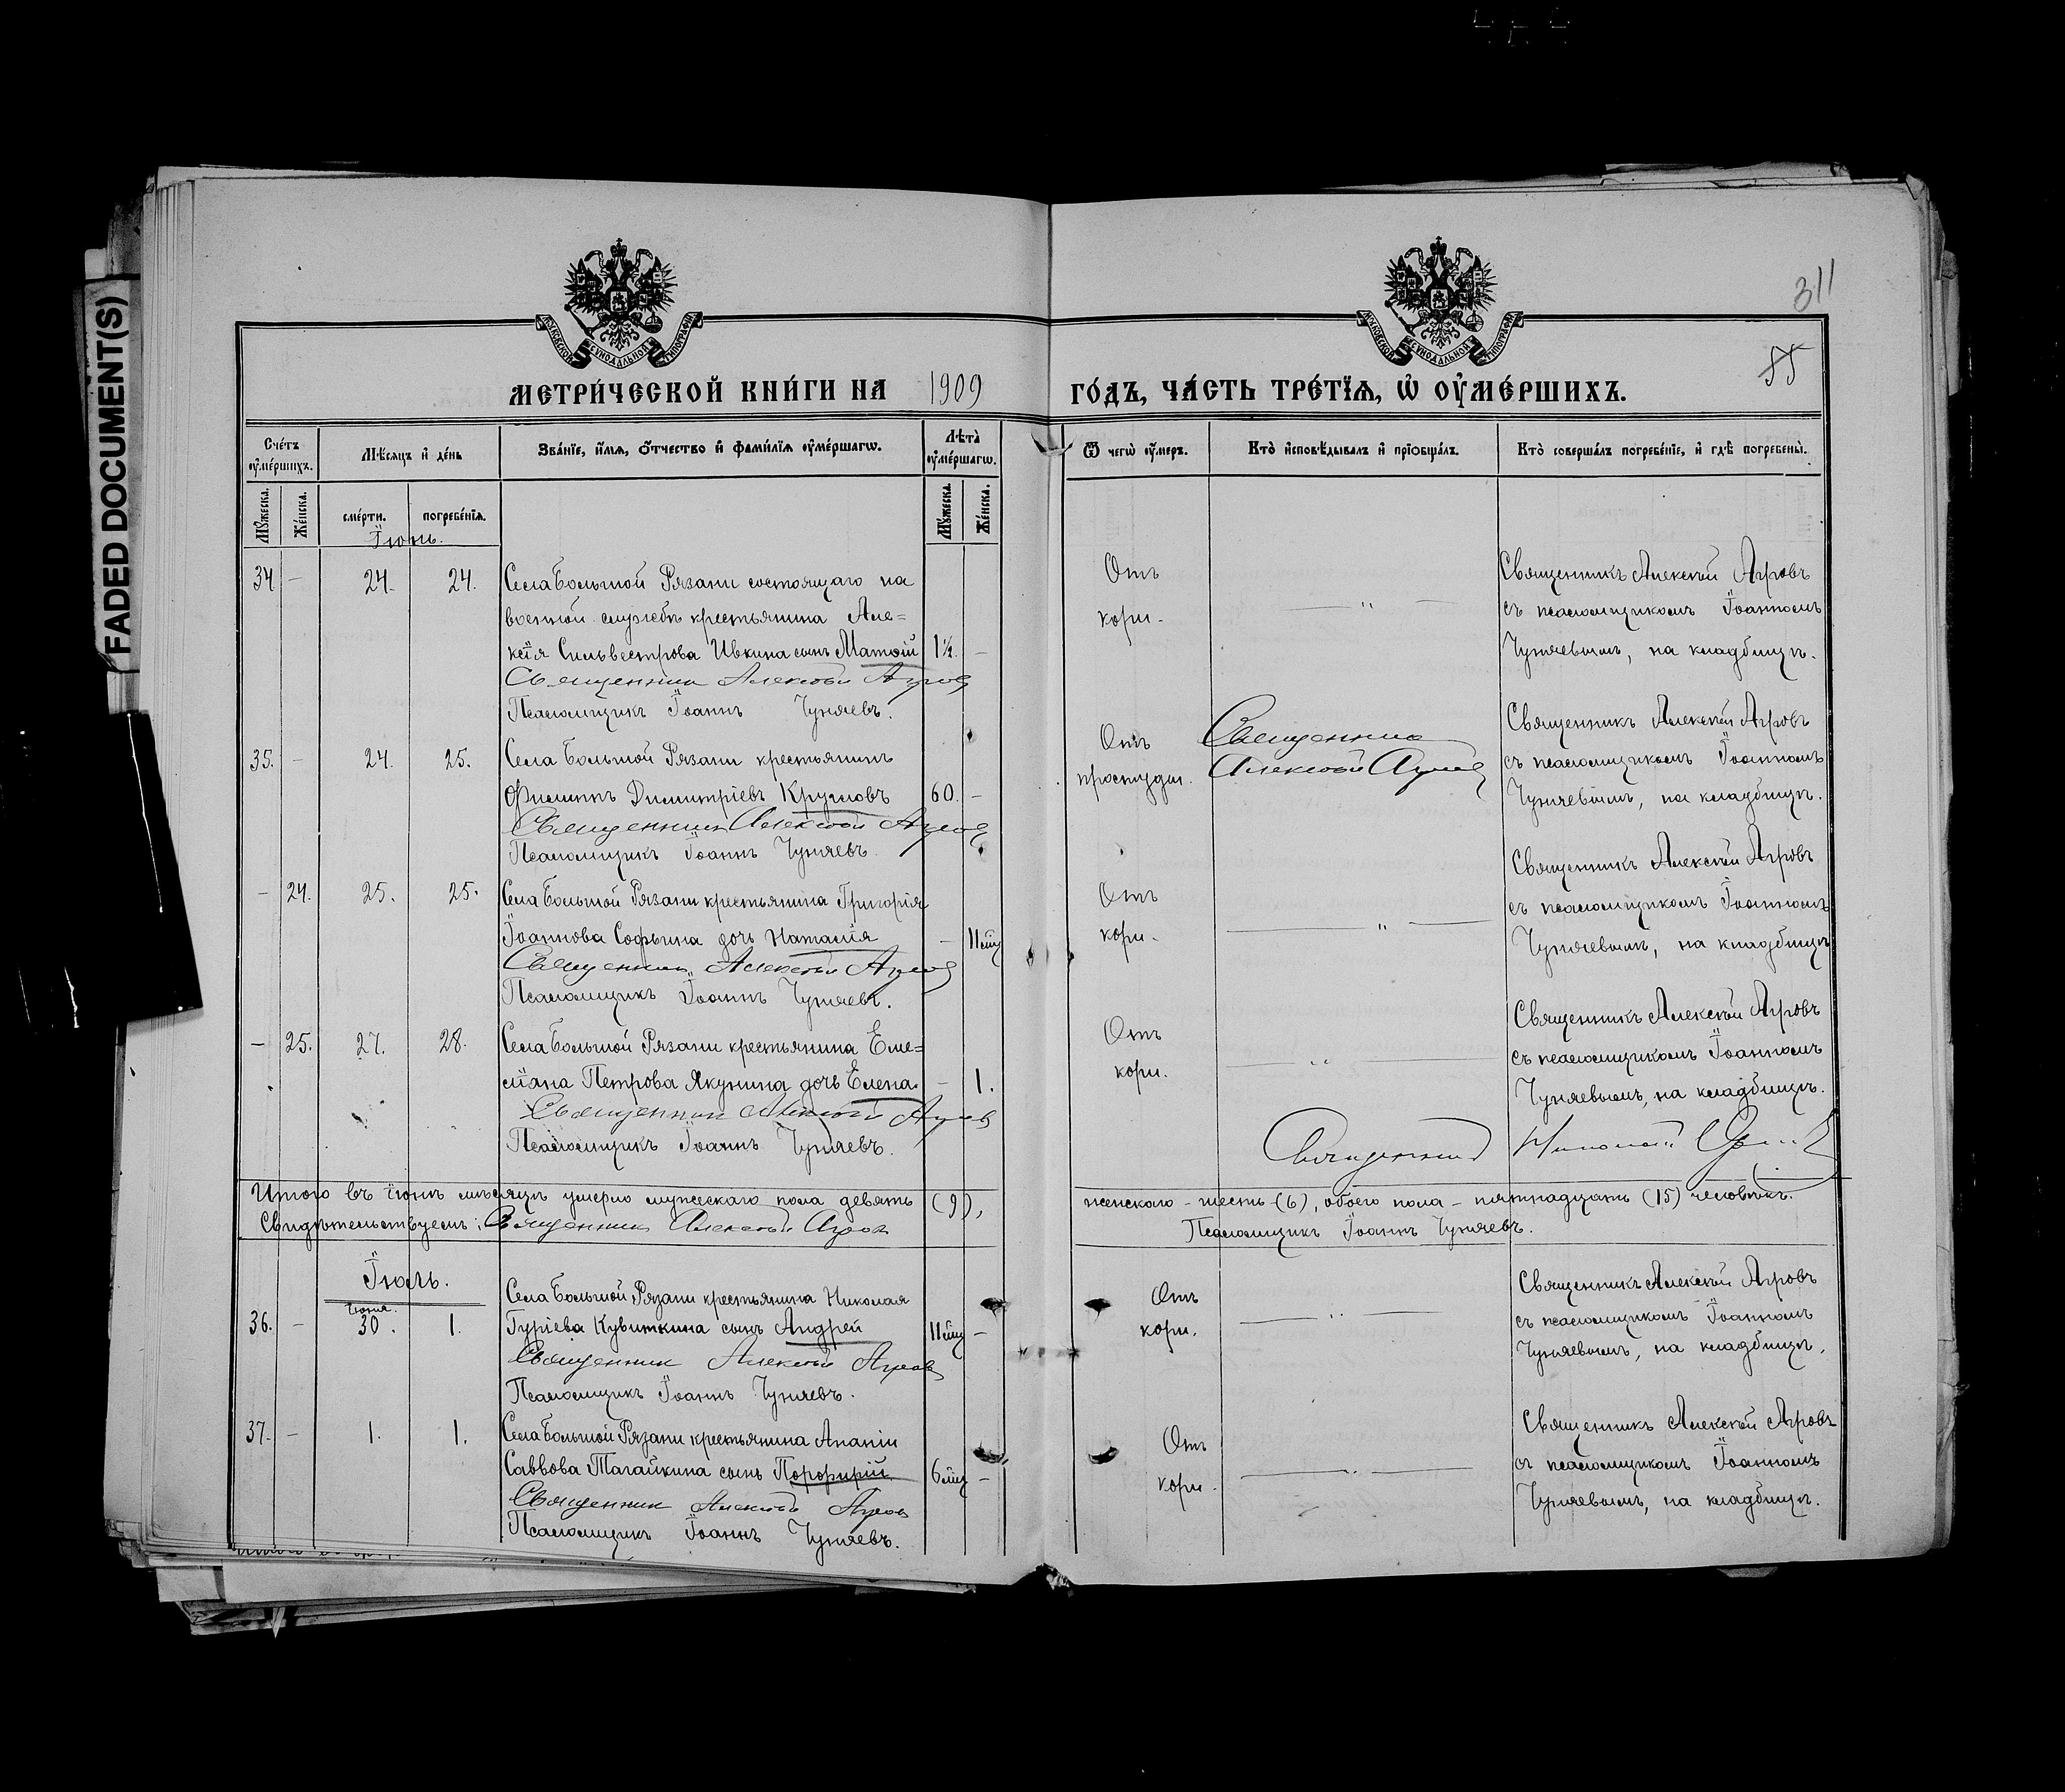 FADED DOCUMENT(S)
311
55
МОСКОВСКОЙ СѴНОДАЛЬНОЙ ТИПОГРАФІИ
МОСКОВСКОЙ СѴНОДАЛЬНОЙ ТИПОГРАФІИ
МЕТРИ́ЧЕСКОЙ КНИ́ГИ НА 1909 ГО́ДЪ, ЧА́СТЬ ТРЕ́ТЇѦ, Ѡ҆ ОУ҆МЕ́РШИХЪ.
Сче́тъ оу҆ме́ршихъ.
Мѣ́сяцъ и҆ де́нь
Зва́нїе, и҆́мѧ, ѻ҆́тчество и҆ фами́лїѧ оу҆ме́ршагѡ.
Лѣ́та оу҆ме́ршагѡ.
Ѿ чегѡ̀ оу҆́меръ.
Кто̀ и҆сповѣ́дывалъ и҆ прїѡбща́лъ.
Кто̀ соверша́лъ погребе́нїе, и҆ гдѣ̀ погребены̀.
Мꙋ́жеска.
Же́нска.
сме́рти.
погребе́нїѧ.
Мꙋ́жеска.
Же́нска.
Іюнь.
34 – 24. 24. Села Большой Рязани состоящаго на
военной службѣ крестьянина Але=
ксѣя Сильвестрова Ивкина сынъ Матѳій 1½. –
Священникъ Алексѣй Агровъ
Псаломщикъ Іоаннъ Чуняевъ.
Отъ
кори.
– " –
Священникъ Алексѣй Агровъ
съ псаломщикомъ Іоанномъ
Чуняевымъ, на кладбищѣ.
35. – 24. 25. Села Большой Рязани крестьянинъ
Филиппъ Димитріевъ Кругловъ 60. –
Священникъ Алексѣй Агровъ
Псаломщикъ Іоаннъ Чуняевъ.
Отъ
простуды.
Священникъ
Алексѣй Агровъ
Священникъ Алексѣй Агровъ
съ псаломщикомъ Іоанномъ
Чуняевымъ, на кладбищѣ.
– 24. 25. 25. Села Большой Рязани крестьянина Григорія
Іоаннова Софьина дочь Наталія – 11 мѣц
Священникъ Алексѣй Агровъ
Псаломщикъ Іоаннъ Чуняевъ.
Отъ
кори.
– " –
Священникъ Алексѣй Агровъ
съ псаломщикомъ Іоанномъ
Чуняевымъ, на кладбищѣ
– 25. 27. 28. Села Большой Рязани крестьянина Еме=
лїана Петрова Якунина дочь Елена. – 1.
Священникъ Алексѣй Агровъ
Псаломщикъ Іоаннъ Чуняевъ.
Отъ
кори.
– " –
Священникъ Алексѣй Агровъ
съ псаломщикомъ Іоанномъ
Чуняевымъ, на кладбищѣ.
Священникъ Николай
Итого въ іюнѣ мѣсяцѣ умерло мужескаго пола девять (9), женскаго – шесть (6), обоего пола – пятнадцать (15) человѣкъ.
Свидѣтельствуемъ: Священникъ Алексѣй Агровъ Псаломщикъ Іоаннъ Чуняевъ.
Іюль.
іюня.
36. – 30. 1. Села Большой Рязани крестьянина Николая
Гуріева Кувиткина сынъ Андрей 11 мѣц –
Священникъ Алексѣй Агровъ
Псаломщикъ Іоаннъ Чуняевъ.
Отъ
кори.
– " –
Священникъ Алексѣй Агровъ
съ псаломщикомъ Іоанномъ
Чуняевымъ, на кладбищѣ.
37. – 1. 1. Села Большой Рязани крестьянина Ананіи
Саввова Тагайкина сынъ Порфирій 6 мѣц –
Священникъ Алексѣй Агровъ
Псаломщикъ Іоаннъ Чуняевъ.
Отъ
кори.
– " –
Священникъ Алексѣй Агровъ
съ псаломщикомъ Іоанномъ
Чуняевымъ, на кладбищѣ.